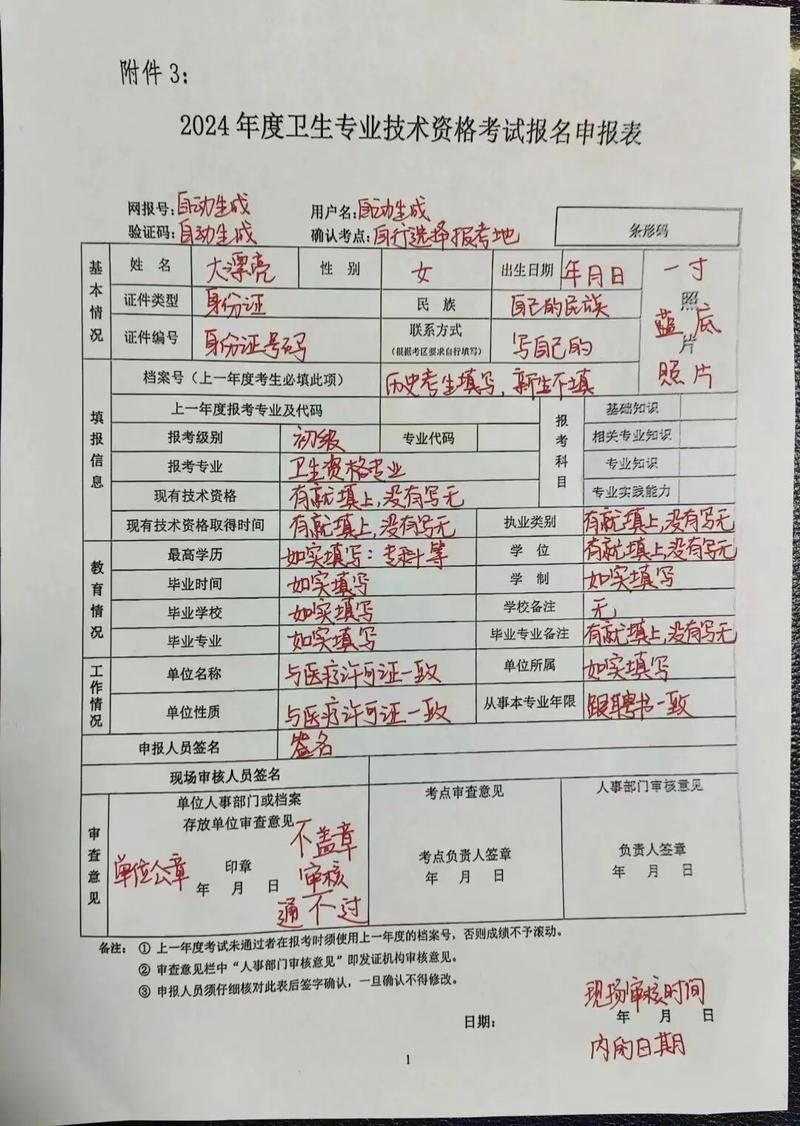 附件 3：
2024 年度卫生专业技术资格考试报名申报表
网报号：自动生成 用户名：自动生成
验证码：自动生成 确认考点：自行选择报考地 条形码
基本情况 姓名 大漂亮 性别 女 出生日期 年月日 一寸
证件类型 身份证 民族 自己的民族 照
蓝底
片
证件编号 身份证号码 联系方式 写自己的 照片
（根据考区要求自行填写）
填报信息 档案号（上一年度考生必填此项） 历史考生填写，新生不填
上一年度报考专业及代码 报考科目 基础知识
报考级别 初级 专业代码 相关专业知识
报考专业 卫生资格专业 专业知识
现有技术资格 有就填上，没有写无 专业实践能力
现有技术资格取得时间 有就填上，没有写无 执业类别 有就填上，没有写无
教育情况 最高学历 如实填写：专科等 学位 有就填上，没有写无
毕业时间 如实填写 学制 如实填写
毕业学校 如实填写 学校备注 无
毕业专业 如实填写 毕业专业备注 有就填上，没有写无
工作情况 单位名称 与医疗许可证一致 单位所属 如实填写
单位性质 与医疗许可证一致 从事本专业年限 跟聘书一致
申报人员签名 签名
现场审核人员签名
审查意见 单位人事部门或档案 考点审查意见 人事部门审核意见
存放单位审查意见
不盖章
单位公章 印章 审核 考点负责人签章 负责人签章
年 月 日 年 月 日 年 月 日
通不过
备注： ① 上一年度考试未通过者在报考时须使用上一年度的档案号，否则成绩不予滚动。
② 审查意见栏中“人事部门审核意见”即发证机构审核意见。
③ 申报人员须仔细核对此表后签字确认，一旦确认不得修改。
现场审核时间
日期： 年 月 日
内的日期
1